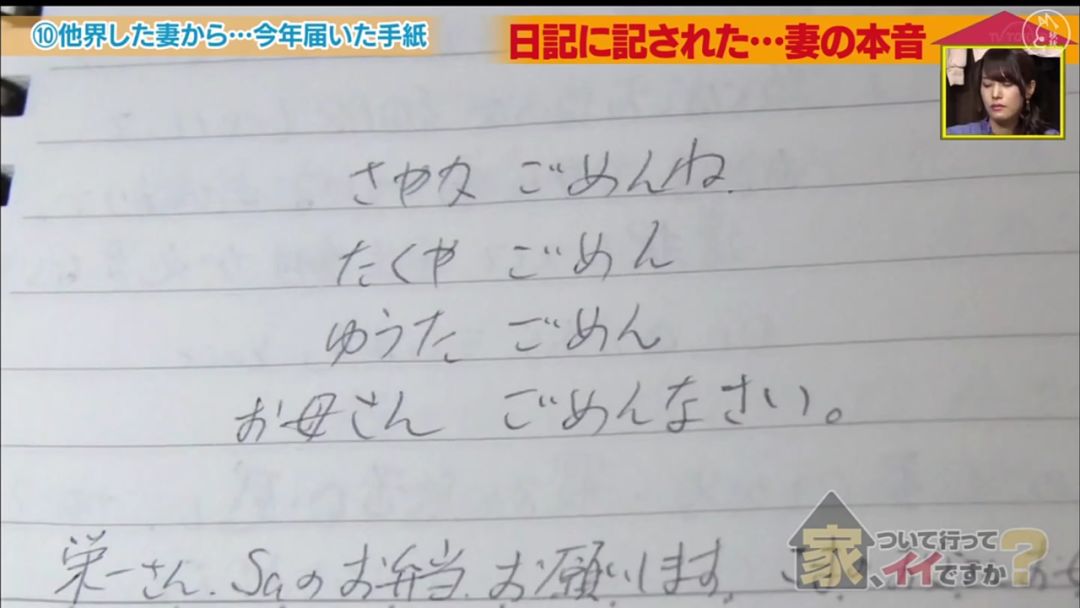 ⑩他界した妻から…今年届いた手紙
日記に記された…妻の本音
さやか ごめんね.
たくや ごめん
ゆうた ごめん
お母さん ごめんなさい。
栄一さん. Saのお弁当. お願いします.
家、ついて行ってイイですか?